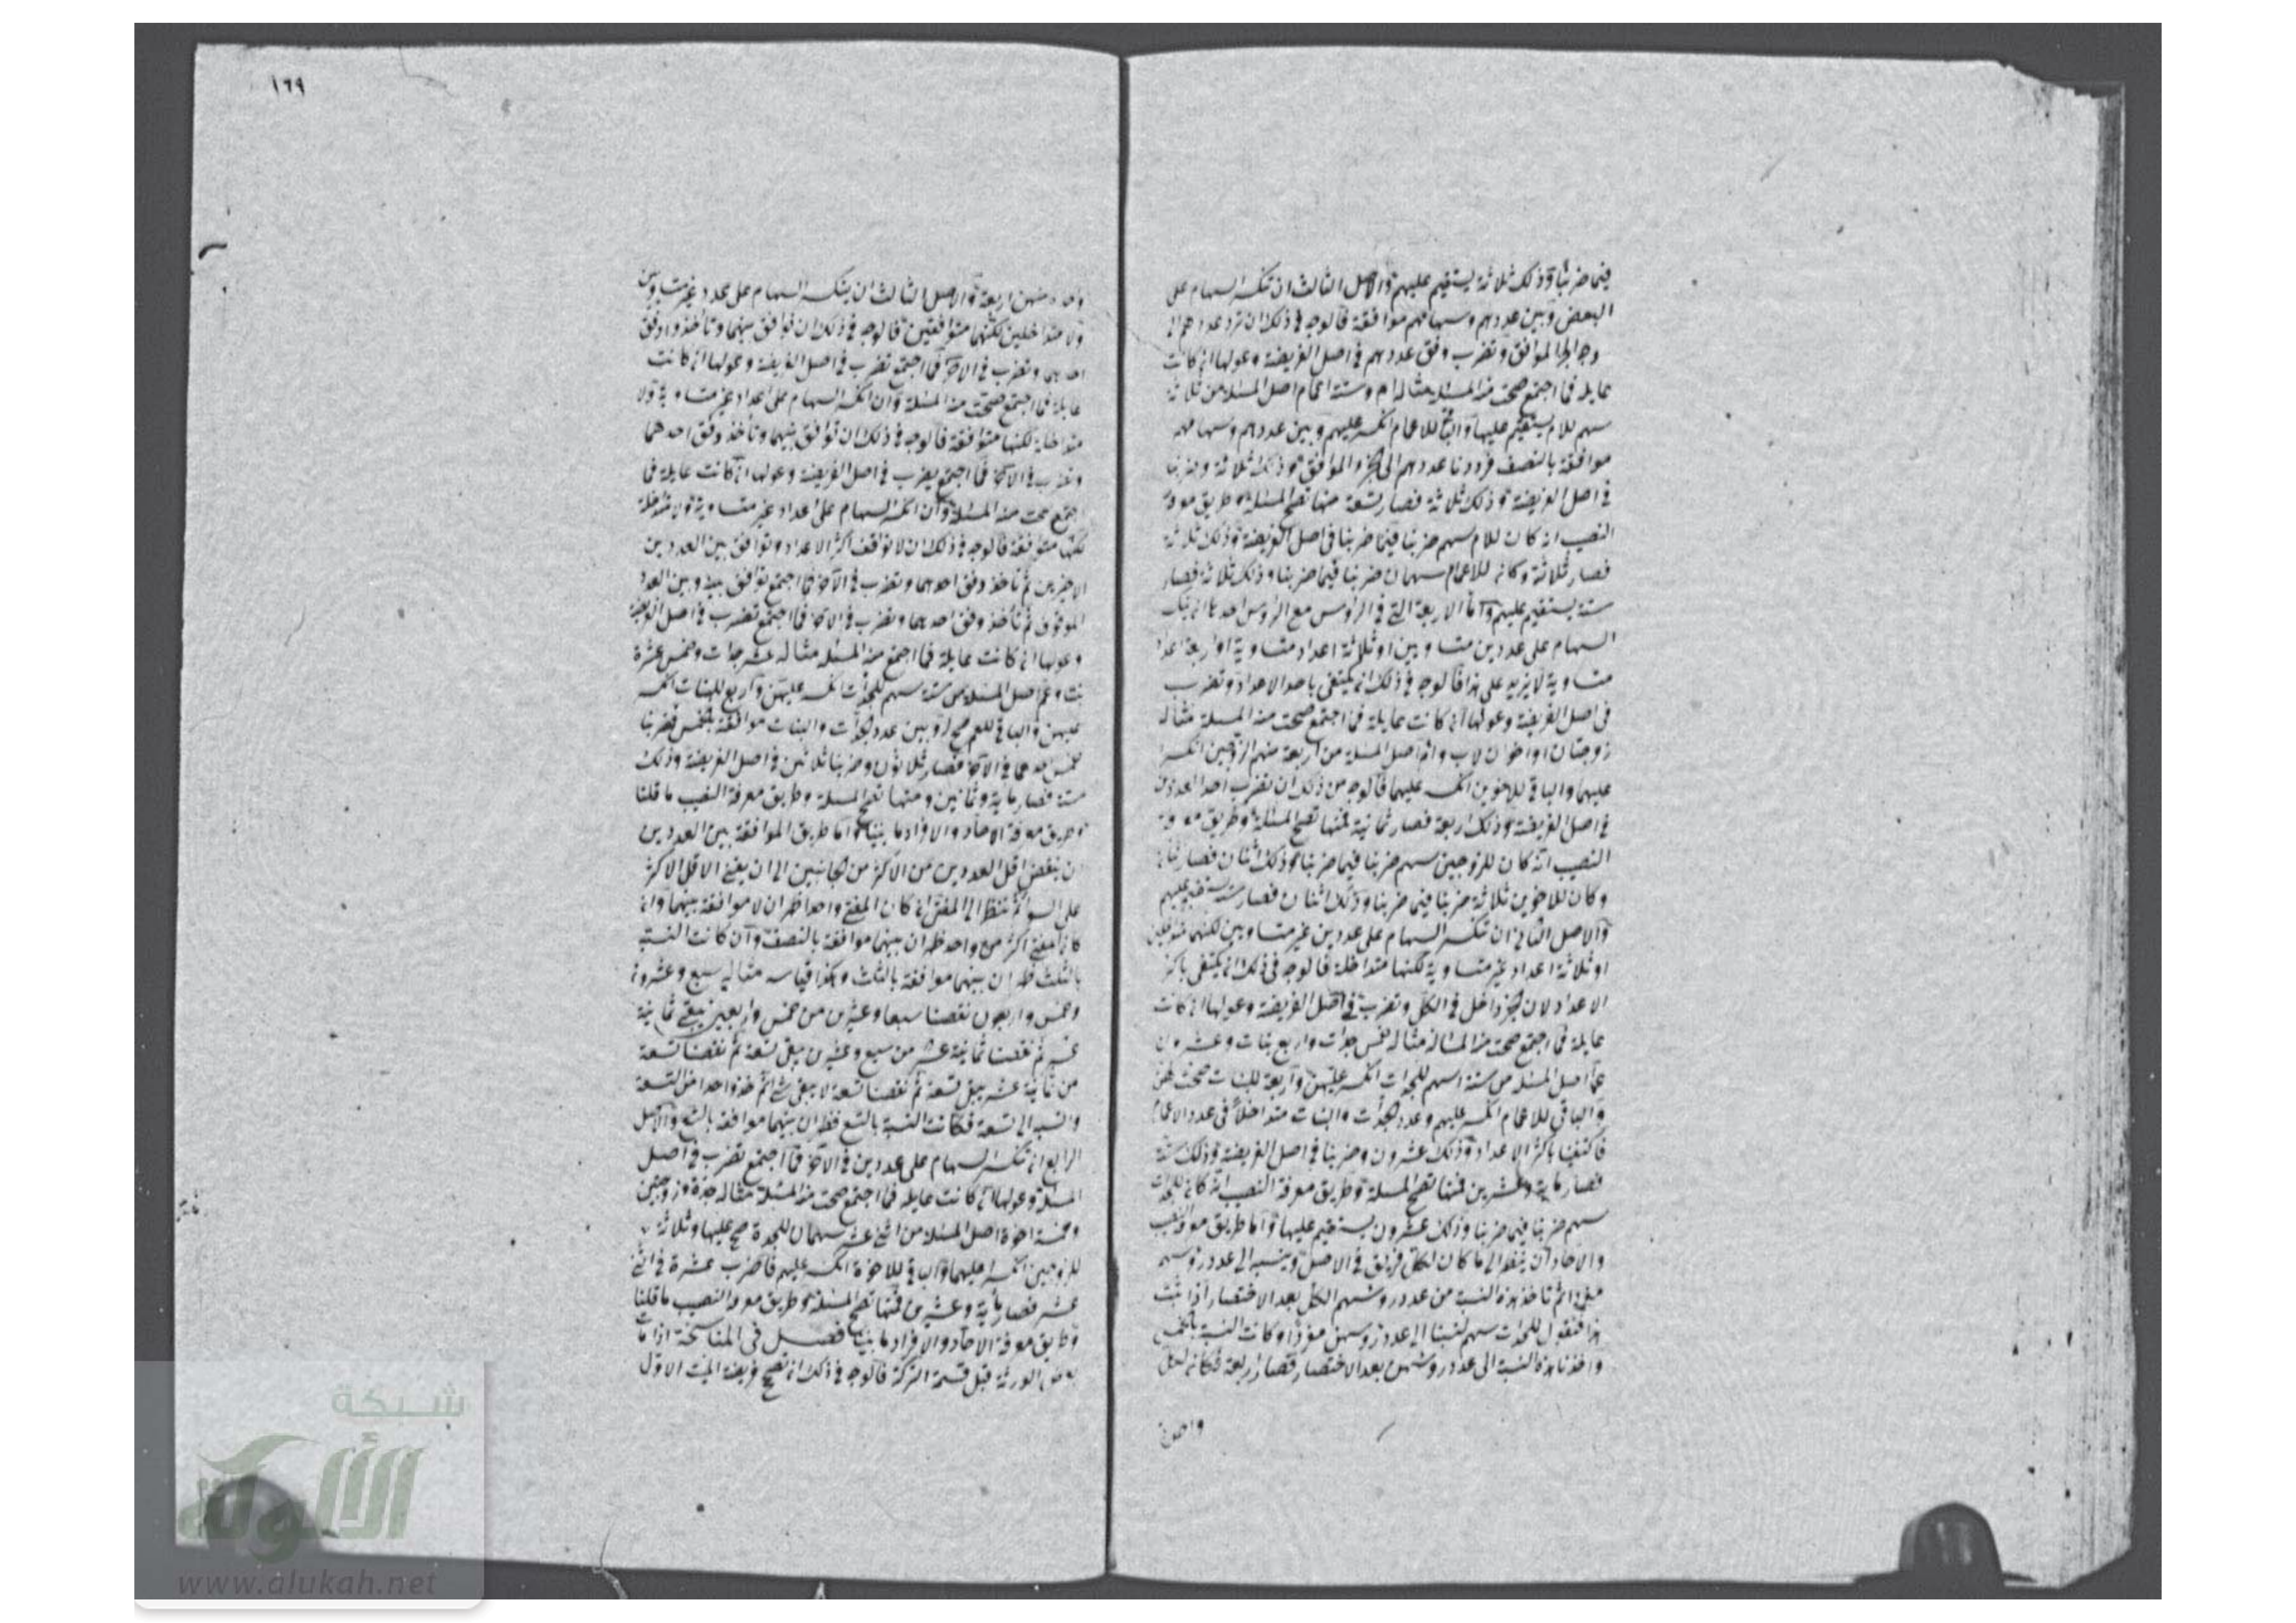 فيما ضربنا وذلك ثلاثة يستقيم عليهم والاصل الثالث ان تنكسر السهام على
البعض وبين عددهم وسهامهم موافقة فالوجه في ذلك ان ترد عددهم الى
الموافق وتضرب وفق عددهم في اصل الفريضة وعولها ان كانت
عايلة فما اجتمع صحت منه المسئلة مثاله ام وستة اعمام اصل المسئلة من ثلاثة
سهم للام يستقيم عليها والباقي للاعمام انكسر عليهم وبين عددهم وسهامهم
موافقة بالنصف فرددنا عددهم الى الجزء الموافق وذلك ثلاثة وضربنا
في اصل الفريضة وذلك ثلاثة فصار تسعة منها تصح المسئلة وطريق معرفة
النصيب انه كان للام سهم ضربنا فيما ضربنا في اصل الفريضة وذلك ثلاثة
فصار ثلاثة وكان للاعمام سهمان ضربنا فيما ضربنا وذلك ثلاثة فصار
ستة يستقيم عليهم واما الاربعة التي في الرؤس مع الرؤس احدها ان ينكسر
السهام على عددين متساويين او ثلاثة اعداد متساوية او اربعة اعداد
متساوية لا يزيد على هذا فالوجه في ذلك ان يكتفى باحد الاعداد وتضرب
في اصل الفريضة وعولها ان كانت عايلة فما اجتمع صحت منه المسئلة مثاله
زوجتان او اخوان لاب وام اصل المسئلة من اربعة سهم الزوجين انكسر
عليهما والباقي للاخوين انكسر عليهما فالوجه من ذلك ان تضرب احد العددين
في اصل الفريضة وذلك اربعة فصار ثمانية فمنها تصح المسئلة وطريق معرفة
النصيب انه كان للزوجين سهم ضربنا فيما ضربنا وذلك اثنان فصار
وكان للاخوين ثلاثة ضربنا فيما ضربنا وذلك اثنان فصار ستة يستقيم عليهم
والاصل الثاني ان تنكسر السهام على عددين غير متساويين لكنهما متداخلين
او ثلاثة اعداد غير متساوية لكنها متداخلة فالوجه في ذلك ان يكتفى باكثر
الاعداد لان الجزء داخل في الكل وتضرب في اصل الفريضة وعولها ان كانت
عايلة فما اجتمع صحت منه المسئلة مثاله خمس جدات واربع بنات وعشرون
عما اصل المسئلة من ستة اسهم للجدات انكسر عليهن واربعة للبنات صحت لهن
والباقي للاعمام انكسر عليهم وعدد الجدات والبنات متداخلا في عدد الاعمام
فاكتفينا باكثر الاعداد وذلك عشرون وضربنا في اصل الفريضة وذلك ستة
فصار ماية وعشرين فمنها تصح المسئلة وطريق معرفة النصيب انه كان للجدات
سهم ضربنا فيما ضربنا وذلك عشرون يستقيم عليها واما طريق معرفة النصيب
والاحاد ان ينظر الى ما كان لكل فريق في الاصل وينسب الى عدد رؤسهم
ثم تاخذ هذه النسبة من عدد رؤسهم الكل بعد الاختصار اذا ثبت
هذا فنقول للجدات سهم نسبنا الى عدد رؤسهن مفردا وكانت النسبة بالخمس
واخذنا هذه النسبة الى عدد رؤسهن بعد الاختصار فصار اربعة فكان لكل
واحدة
١٦٩
واحدة منهن اربعة والاصل الثالث ان ينكسر السهام على عدد غير متساويين
ولا متداخلين لكنهما متوافقين فالوجه في ذلك ان توافق بينهما وتأخذ وفق
احدهما وتضرب في الآخر فما اجتمع تضرب في اصل الفريضة وعولها ان كانت
عايلة فما اجتمع صحت منه المسئلة وان انكسر السهام على اعداد غير متساوية ولا
متداخلة لكنها متوافقة فالوجه في ذلك ان توافق بينهما وتأخذ وفق احدهما
وتضرب في الآخر فما اجتمع يضرب في اصل الفريضة وعولها ان كانت عايلة فما
اجتمع صحت منه المسئلة وان انكسر السهام على اعداد غير متساوية ولا متداخلة
لكنها متوافقة فالوجه في ذلك ان لا توقف اكثر الاعداد وتوافق بين العددين
الاخيرين ثم تأخذ وفق احدهما وتضرب في الآخر فما اجتمع توافق بينه وبين العدد
الموقوف ثم تأخذ وفق احدهما وتضرب في الآخر فما اجتمع تضرب في اصل الفريضة
وعولها ان كانت عايلة فما اجتمع منه المسئلة مثاله عشر جدات وخمس عشرة
بنت وعم اصل المسئلة من ستة سهم للجدات انكسر عليهن واربع للبنات انكسر
عليهن والباقي للعم صح له وبين عدد الجدات والبنات موافقة بالخمس فضربنا
خمس احدهما في الآخر فصار ثلاثون وضربنا ثلاثين في اصل الفريضة وذلك
ستة فصار ماية وثمانين ومنها تصح المسئلة وطريق معرفة النصيب ما قلنا
وطريق معرفة الاحاد والافراد ما بينا واما طريق الموافقة بين العددين
ان ينقص اقل العددين من الاكثر من الجانبين الى ان يفنى الاقل الاكثر
على السوا ثم تنظر الى المفنى ان كان المفنى واحدا ظهر ان لا موافقة بينهما وان
كان المفنى اكثر من واحد ظهر ان بينهما موافقة بالنصف وان كانت النسبة
بالثلث ظهر ان بينهما موافقة بالثلث وهكذا قياسه مثاله سبع وعشرون
وخمس واربعون نقصنا سبعا وعشرين من خمس واربعين يبقى ثمانية
عشر ثم نقصنا ثمانية عشر من سبع وعشرين يبقى تسعة ثم نقصنا تسعة
من ثمانية عشر يبقى تسعة ثم نقصنا تسعة لا يبقى شئ ثم خذ واحدا من التسعة
وانسبه الى تسعة فكانت النسبة بالتسع فظهر ان بينهما موافقة بالتسع والاصل
الرابع ان تنكسر السهام على عددين في الآخر فما اجتمع تضرب في اصل
المسئلة وعولها ان كانت عايلة فما اجتمع صحت منه المسئلة مثاله جدة وزوجتين
وخمسة اخوة اصل المسئلة من اثنى عشر سهمان للجدة صح عليها وثلاثة
للزوجين انكسر عليهما والباقي للاخوة انكسر عليهم فاضرب عشرة في اثنى
عشر فصار ماية وعشرين فمنها تصح المسئلة وطريق معرفة النصيب ما قلنا
وطريق معرفة الاحاد والافراد ما بينا فصل في المناسخة اذا مات
بعض الورثة قبل قسمة التركة فالوجه في ذلك ان تصح فريضة الميت الاول
شبكة
الألوكة
www.alukah.net